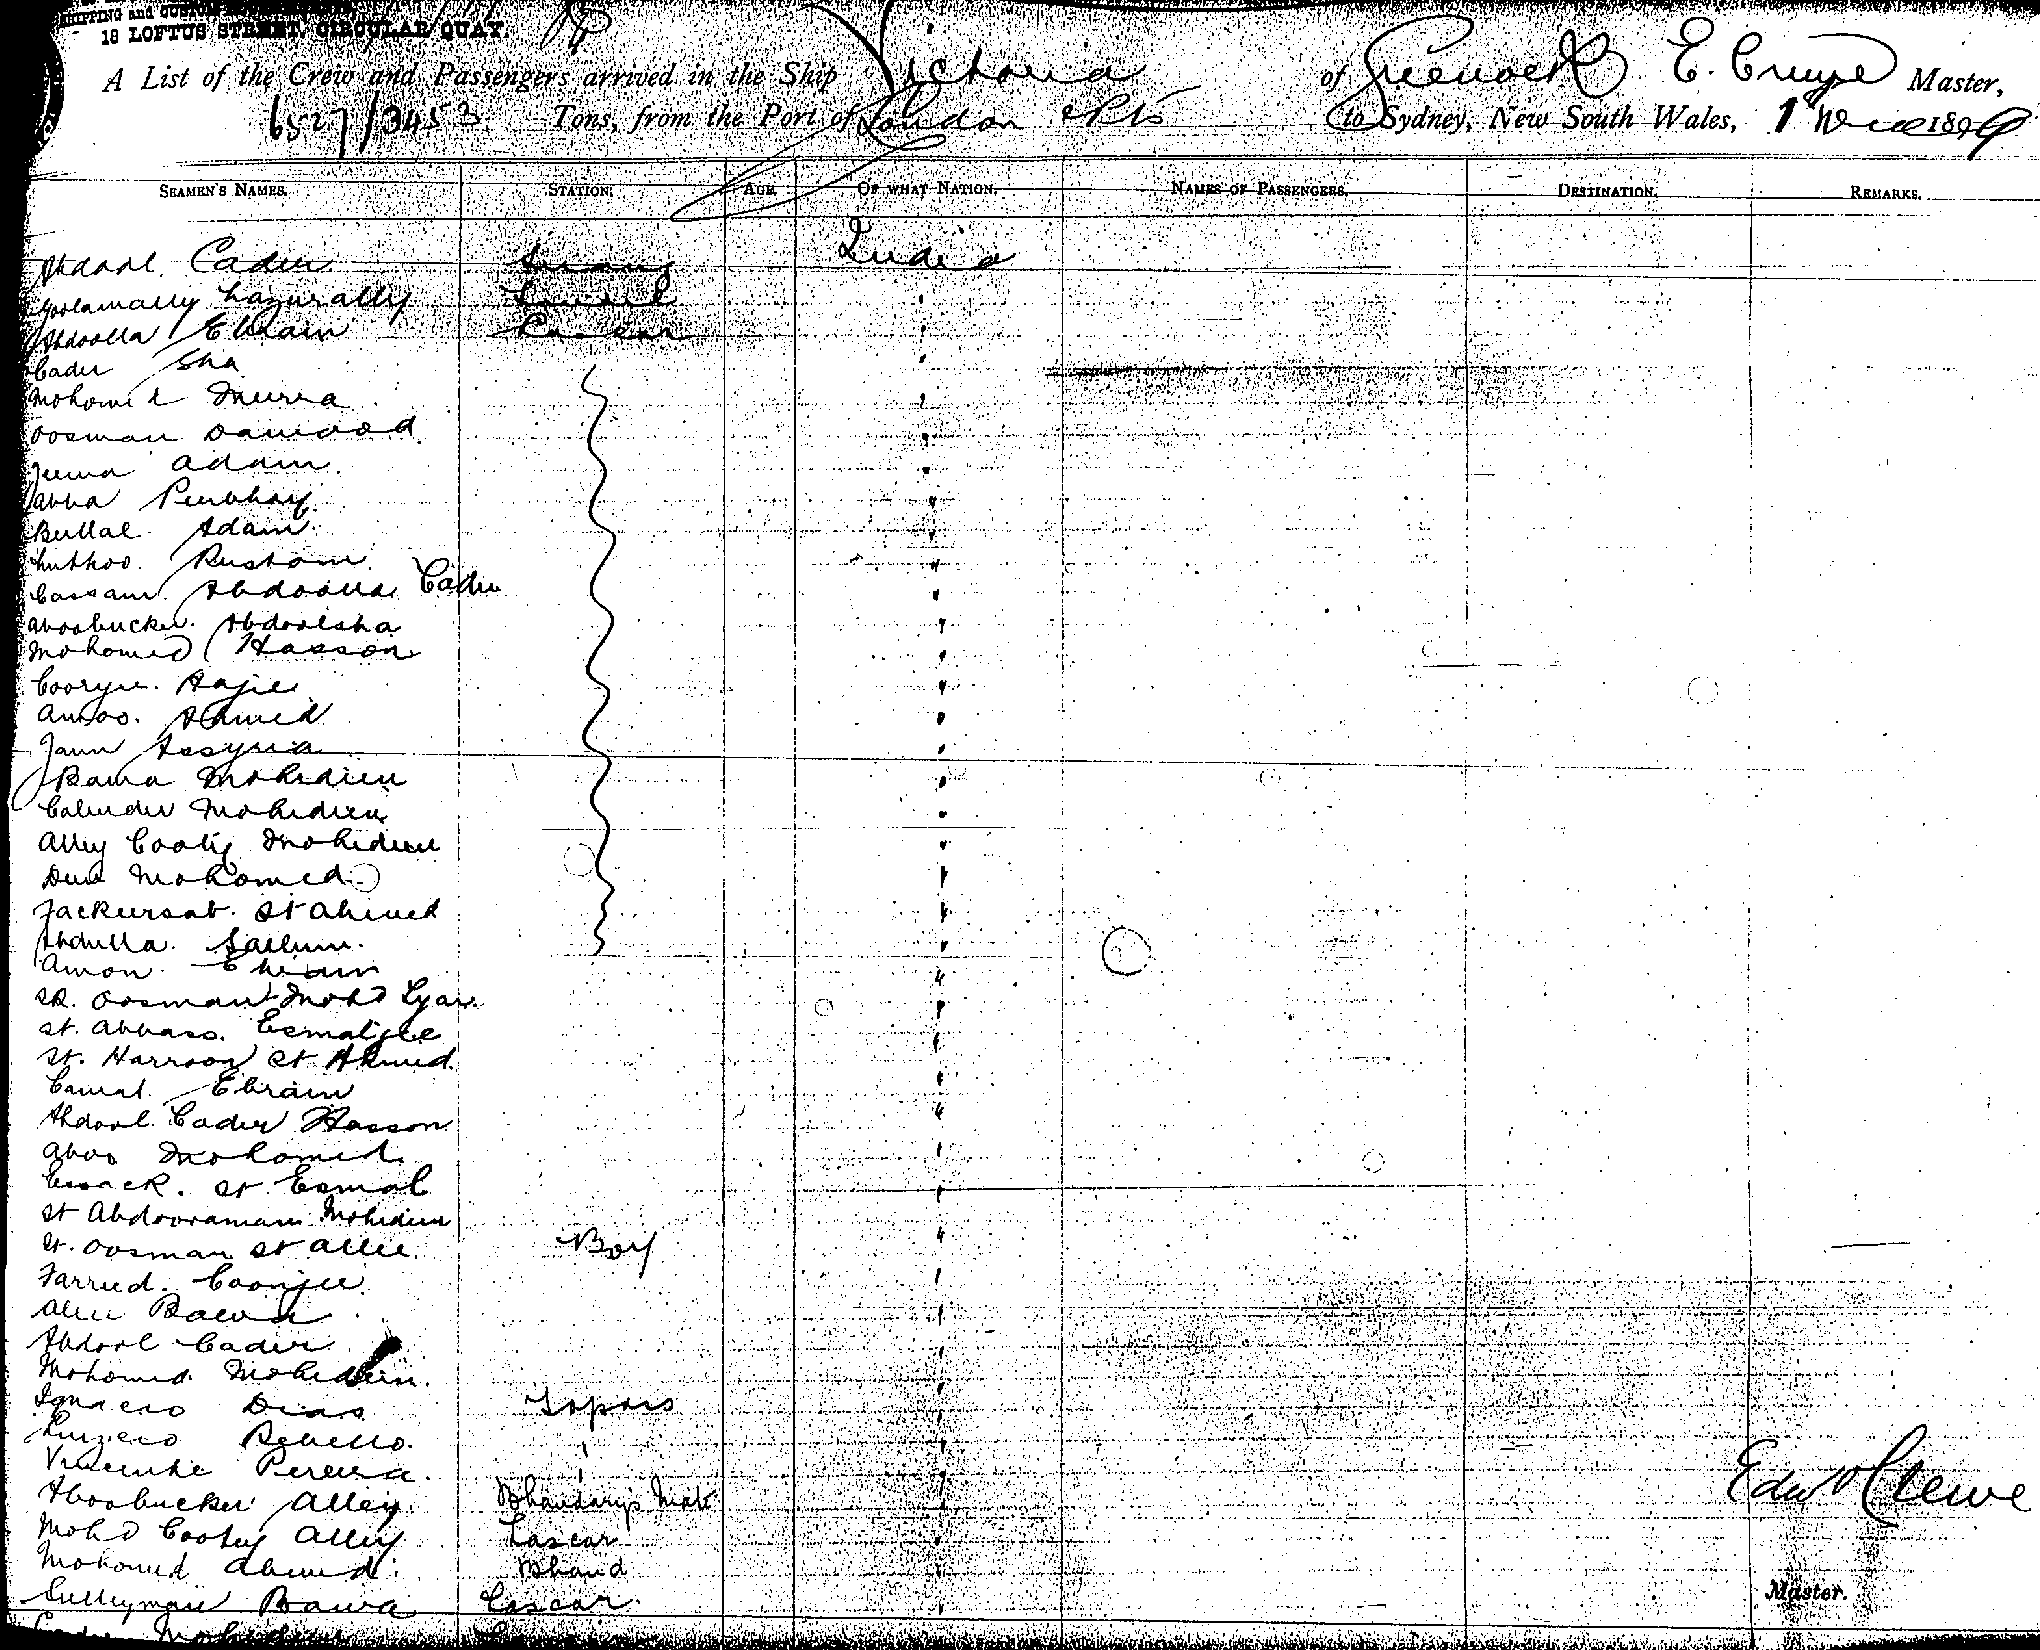 SHIPPING and
18 LOFTUS STREET, CIRCULAR QUAY.
A List of the Crew and Passengers arrived in the Ship Victoria of Greenock E. Crewe Master,
6527/3453 Tons, from the Port of London & Pts to Sydney, New South Wales, 1st Dec 1899
SEAMEN'S NAMES. STATION. AGE. OF WHAT NATION. NAMES OF PASSENGERS. DESTINATION. REMARKS.
Abdool Cader Serang India
Goolamally Lazurally Tindal "
Abdoolla Ebraim Lascar "
Cader Sha "
Mohomed Murra "
Oosman Dawood "
Juma Adam "
Abba Purbhay "
Bullal Adam "
Rustom "
Cassam Abdoolla Cader "
Aboobucker Abdoolsha "
Mohomed Hasson "
Cooryee Hajee "
Amoo Ahmed "
Jaun Assyria "
Bawa Mohidien "
Calinder Mohidien "
Alley Cooty Mohidien "
Deen Mohomed "
Jackursab St Ahmed "
Abdulla Sallum "
Amon Ebraim "
Sk. Oosman Mohd "
St. Abbass Esmaljee "
St. Harroon St Ahmed "
Camal Ebraim "
Abdool Cader Hasson "
Aboo Mohomed "
Essack St Esmal "
St Abdooraman Mohidien "
St. Oosman St Allee Boy "
Farred Coonjee "
Allee Bawa "
Abdool Cader "
Mohomed Mohidien "
Ignacio Dias Topass "
Rebello " "
Pereira " "
Aboobucker Alley Bhandarys Mate "
Edwd Crewe
Mohd Cootey Alley Lascar "
Mohomed Ahmed Bhand "
Master.
Sulleyman Bawa Lascar "
Cader Mohidien